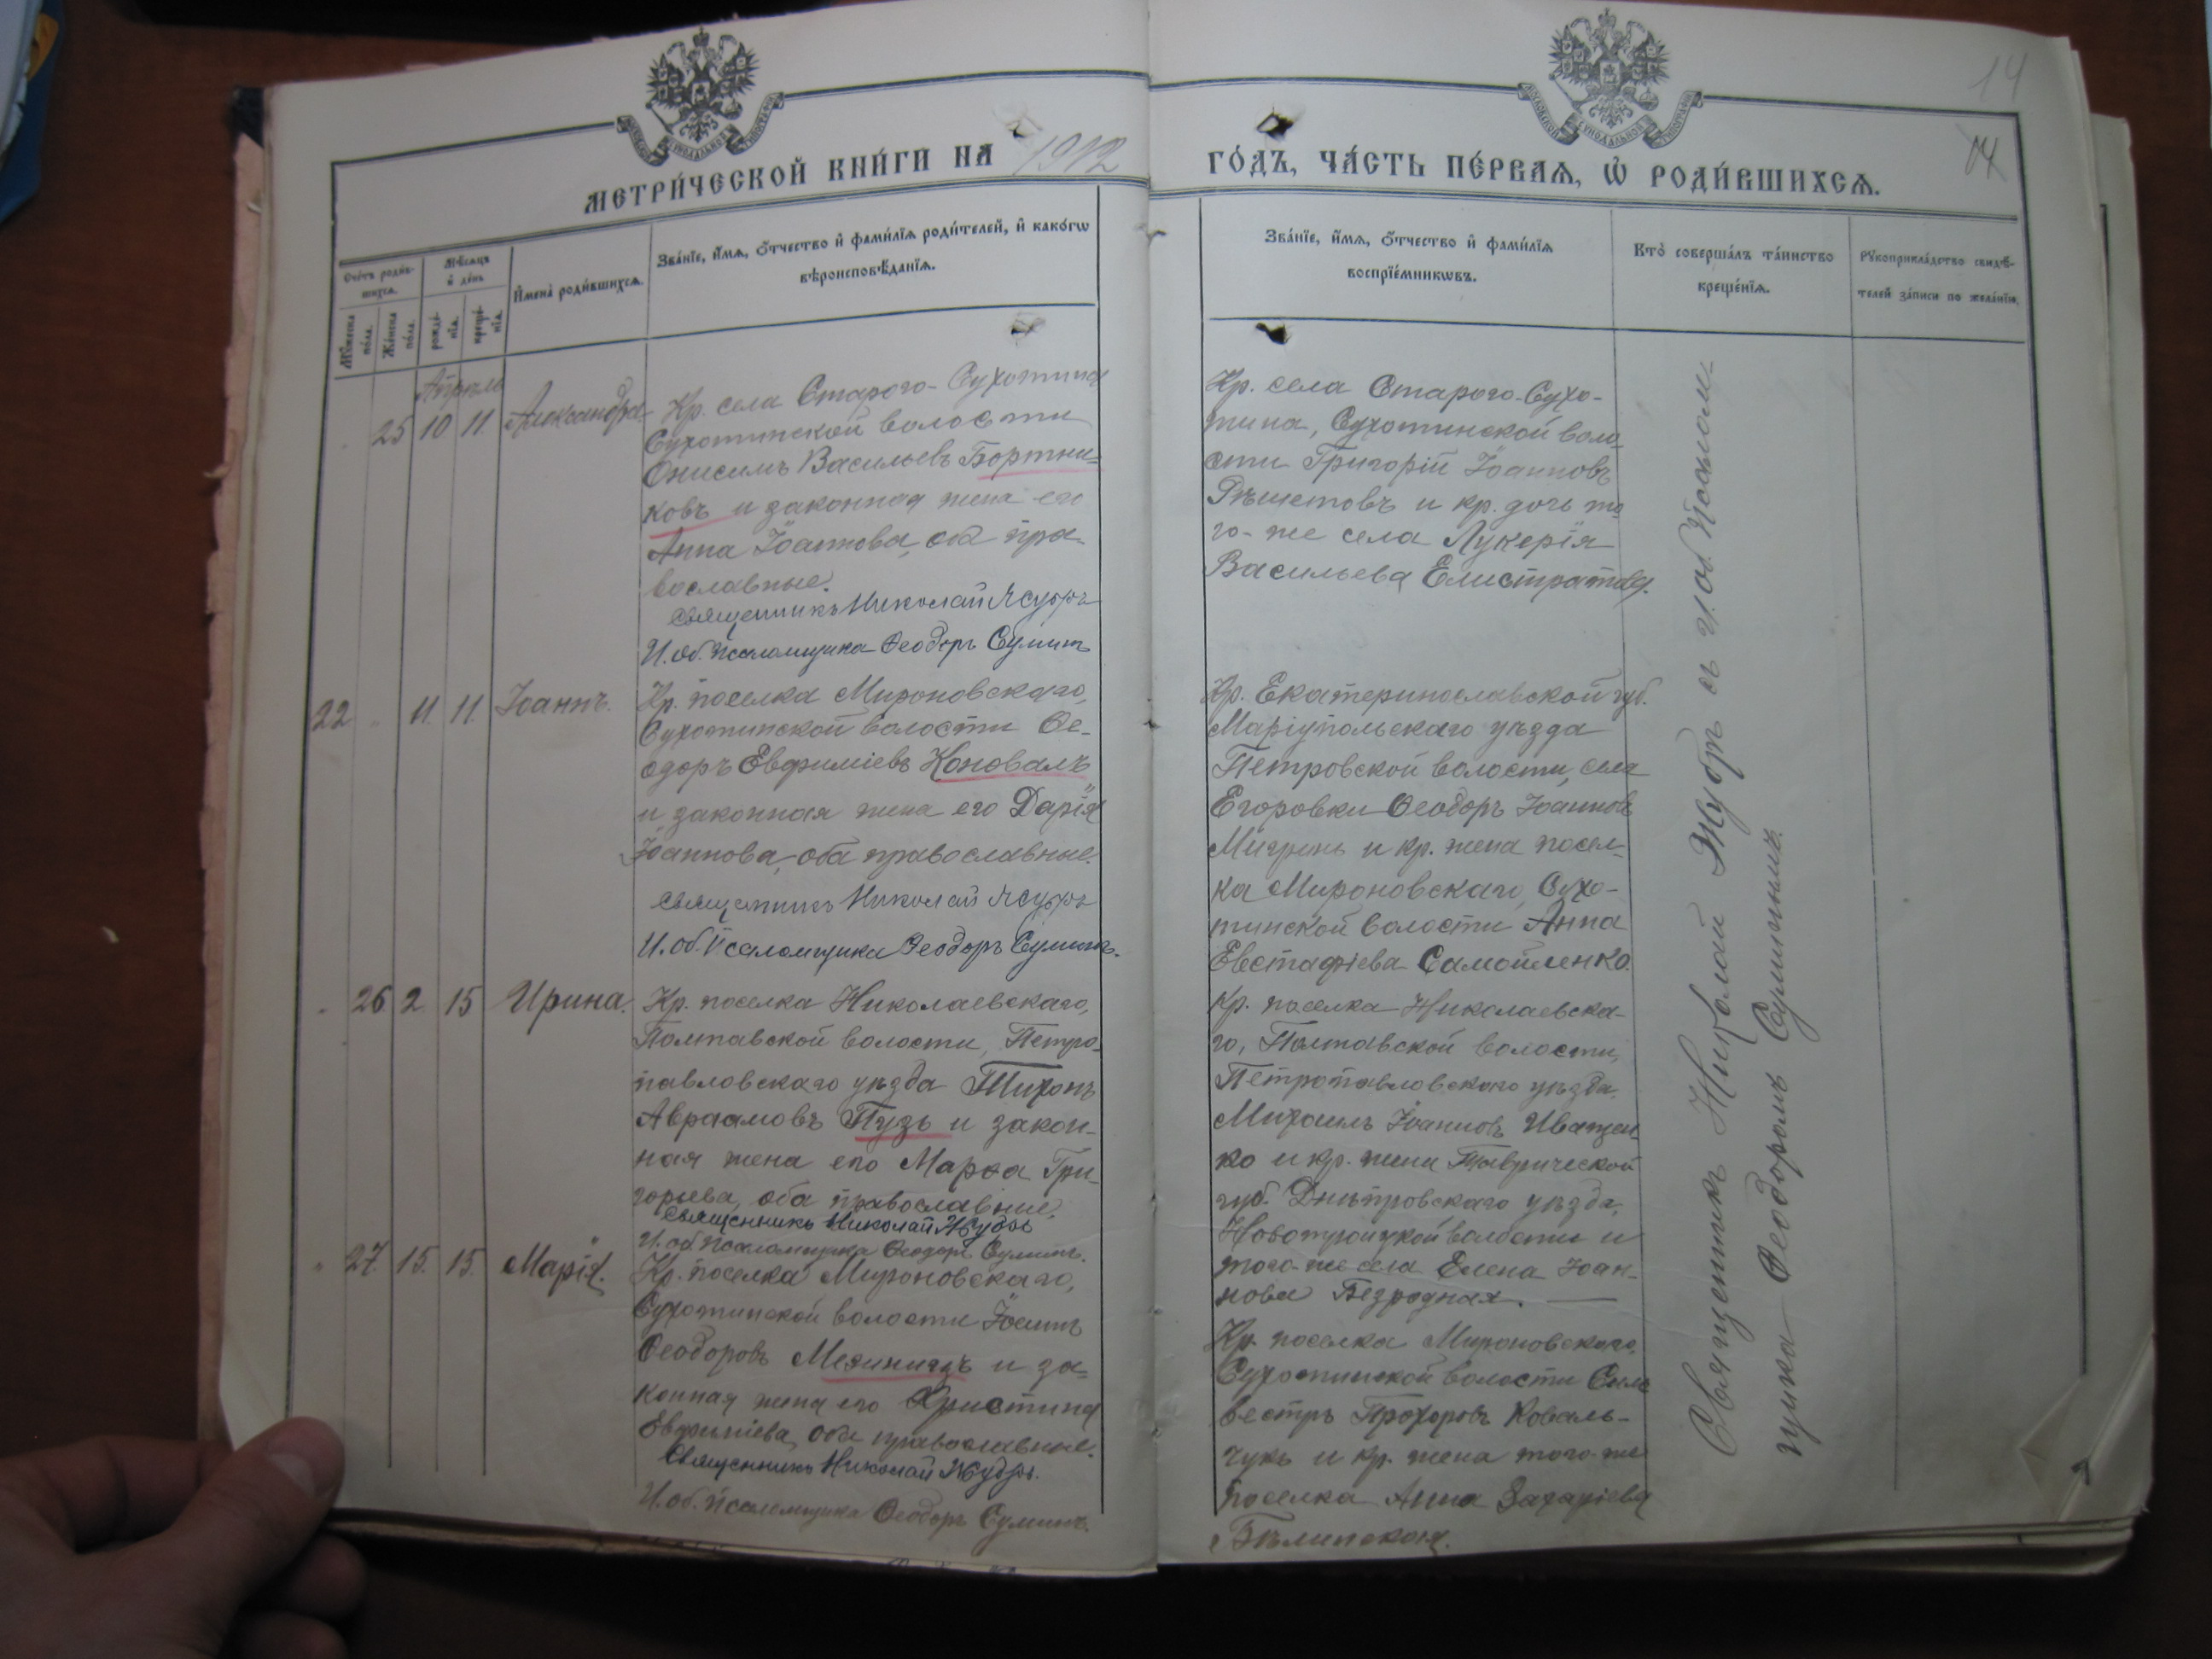 МЕТРИ́ЧЕСКОЙ КНИ́ГИ НА 1912
ГО́ДЪ, ЧА́СТЬ ПЕ́РВАѦ, Ѡ҆ РОДИ́ВШИХСѦ.
14
14
Сче́тъ роди́в-
шихсѧ.
Мꙋ́жеска по́ла.
Же́нска по́ла.
Мѣ́сѧцъ
и҆ де́нь
рожде́-
нїѧ.
креще́-
нїѧ.
И҆мена̀ роди́вшихсѧ.
Зва́нїе, и҆́мѧ, ѻ҆́тчество и҆ фами́лїѧ роди́телей, и҆ како́гѡ
вѣроисповѣ́данїѧ.
Зва́нїе, и҆́мѧ, ѻ҆́тчество и҆ фами́лїѧ
воспрїе́мникѡвъ.
Кто̀ соверша́лъ та́инство
креще́нїѧ.
Рꙋкоприкла́дство свидѣ́-
телей за́писи по жела́нїю.
Апрѣль
25 10 11. Александра.
Кр. села Старого-Сухотина
Сухотинской волости
Онисимъ Васильевъ Бортни-
ковъ и законная жена его
Анна Іоаннова, оба пра-
вославные.
Священникъ Николай
И. об. псаломщика Ѳеодоръ Сулимъ
Кр. села Старого-Сухо-
тина, Сухотинской воло-
сти Григорій Іоанновъ
Рѣшетовъ и кр. дочь то-
го-же села Лукерія
Васильева Елистратова.
22 " 11. 11. Іоаннъ.
Кр. поселка Мироновскаго,
Сухотинской волости Ѳе-
одоръ Евфиміевъ Коновалъ
и законная жена его Дарія
Іоаннова, оба православные.
Священникъ Николай
И. об. Псаломщика Ѳеодоръ Сулимъ.
Кр. Екатеринославской губ.
Маріупольскаго уѣзда
Петровской волости, села
Егоровки Ѳеодоръ Іоанновъ
и кр. жена посел-
ка Мироновскаго, Сухо-
тинской волости Анна
Евстафіева Самойленко.
" 26 2 15 Ирина.
Кр. поселка Николаевскаго,
Полтавской волости, Петро-
павловскаго уѣзда Тихонъ
Авраамовъ Пузь и закон-
ная жена его Марѳа Гри-
горьева, оба православные.
Священникъ Николай
И. об. Псаломщика Ѳеодоръ Сулимъ.
Кр. поселка Николаевска-
го, Полтавской волости,
Петропавловскаго уѣзда,
Михаилъ Іоанновъ Иващен-
ко и кр. жена Таврической
губ. Днѣпровскаго уѣзда,
Новотроицкой волости и
того-же села Елена Іоан-
нова Безродная.
" 27. 15. 15. Марія.
Кр. поселка Мироновскаго,
Сухотинской волости
Ѳеодоровъ и за-
конная жена его Христина
Евфиміева, оба православные.
Священникъ Николай
И. об. Псаломщика Ѳеодоръ Сулимъ.
Кр. поселка Мироновскаго,
Сухотинской волости Силь-
вестръ Прохоровъ Коваль-
чукъ и кр. жена того-же
поселка Анна Захаріева
Бѣлинская.
Священникъ Николай и И. об. Псалом-
щика Ѳеодоромъ